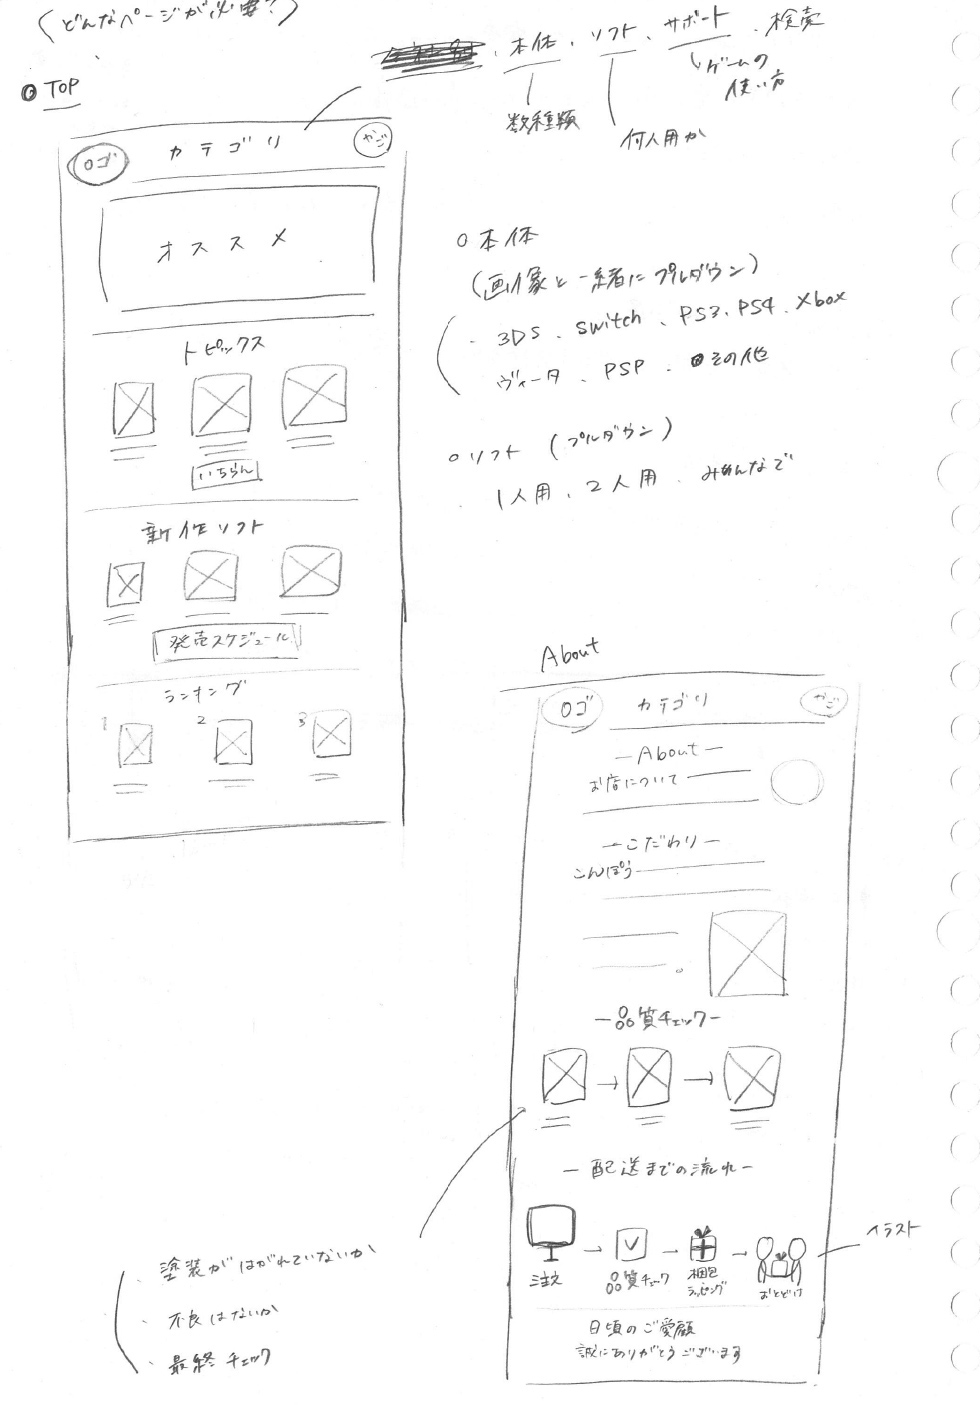 (どんなページが必要?)
・本体・ソフト、サポート、検索
数種類
何人用か
ゲームの
使い方
TOP
ロゴ
カテゴリ
かご
オススメ
トピックス
いちらん
新作ソフト
発売スケジュール
ランキング
1
2
3
○本体
(画像と一緒にプルダウン)
・3DS、switch、PS3、PS4、Xbox
ヴィータ、PSP、その他
○ソフト(プルダウン)
1人用、2人用、みんなで
About
ロゴ
カテゴリ
かご
ーAboutー
お店について
ーこだわりー
こんぽう
ー品質チェックー
・塗装がはがれていないか
・不良はないか
・最終チェック
ー配送までの流れー
注文
→
品質チェック
→
梱包
ラッピング
→
おとどけ
イラスト
日頃のご愛顧
誠にありがとうございます